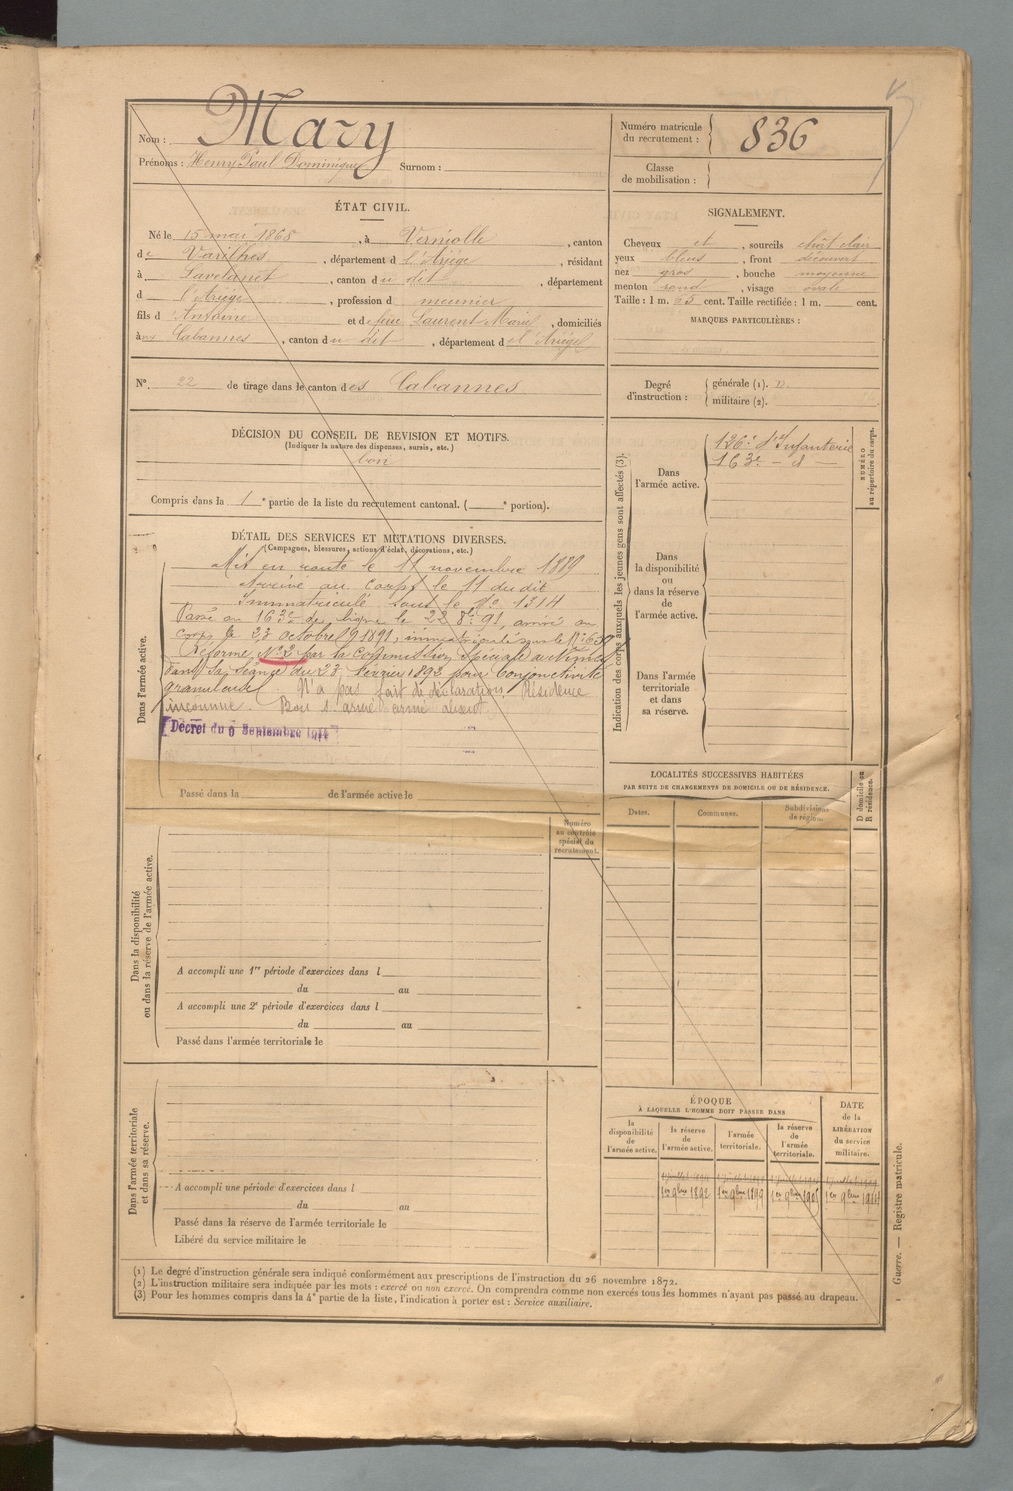 Nom : Mary
Prénoms : Henry Paul Dominique Surnom :
Numéro matricule du recrutement : 836
Classe de mobilisation :
ÉTAT CIVIL.
Né le 15 mai 1868, à Verniolle, canton
de Varilhes, département d l'Ariège, résidant
à Lavelanet, canton du dit, département
d l'Ariège, profession d meunier
fils d Antoine et de feue Laurent Marie, domiciliés
à Cabannes, canton du dit, département d l'Ariège
N° 22 de tirage dans le canton des Cabannes
SIGNALEMENT.
Cheveux et, sourcils chât clair
yeux bleus, front découvert
nez gros, bouche moyenne
menton rond, visage ovale
Taille : 1 m. 63 cent. Taille rectifiée : 1 m. cent.
MARQUES PARTICULIÈRES :
Degré d'instruction :
générale (1).
militaire (2).
DÉCISION DU CONSEIL DE REVISION ET MOTIFS.
(Indiquer la nature des dispenses, sursis, etc.)
bon
Compris dans la 1e partie de la liste du recrutement cantonal. ( e portion).
DÉTAIL DES SERVICES ET MUTATIONS DIVERSES.
(Campagnes, blessures, actions d'éclat, décorations, etc.)
Dans l'armée active.
Mis en route le 11 novembre 1889
Arrivé au corps le 11 du dit
Immatriculé sous le No 1314
Passé au 163e de ligne le 22 8bre 91, arrivé au
corps le 23 octobre 1891, immatriculé sous le N°
Réformé N°2 par la Commission Spéciale de Nimes
dans sa séance du 23 Février 1892 pour Conjonctivite
granuleuse. N'a pas fait de déclaration, Résidence
inconnue.
Décret du 9 Septembre 1914
Passé dans la de l'armée active le
Indication des corps auxquels les jeunes gens sont affectés (3).
Dans l'armée active.
126e d'Infanterie
163e - d -
NUMÉRO au répertoire du corps.
Dans la disponibilité ou dans la réserve de l'armée active.
Dans l'armée territoriale et dans sa réserve.
LOCALITÉS SUCCESSIVES HABITÉES
PAR SUITE DE CHANGEMENTS DE DOMICILE OU DE RÉSIDENCE.
Dates. Communes. Subdivisions de région.
D domicile ou R résidence.
Numéro au contrôle spécial du recrutement.
Dans la disponibilité ou dans la réserve de l'armée active.
A accompli une 1re période d'exercices dans l
du au
A accompli une 2e période d'exercices dans l
du au
Passé dans l'armée territoriale le
Dans l'armée territoriale et dans sa réserve.
A accompli une période d'exercices dans l
du au
Passé dans la réserve de l'armée territoriale le
Libéré du service militaire le
ÉPOQUE
À LAQUELLE L'HOMME DOIT PASSER DANS
la disponibilité de l'armée active.
la réserve de l'armée active.
l'armée territoriale.
la réserve de l'armée territoriale.
DATE de la LIBÉRATION du service militaire.
1er 9bre 1892 1er 9bre 1899 1er 9bre 1905 1er 9bre
(1) Le degré d'instruction générale sera indiqué conformément aux prescriptions de l'instruction du 26 novembre 1872.
(2) L'instruction militaire sera indiquée par les mots : exercé ou non exercé. On comprendra comme non exercés tous les hommes n'ayant pas passé au drapeau.
(3) Pour les hommes compris dans la 4e partie de la liste, l'indication à porter est : Service auxiliaire.
Guerre. — Registre matricule.